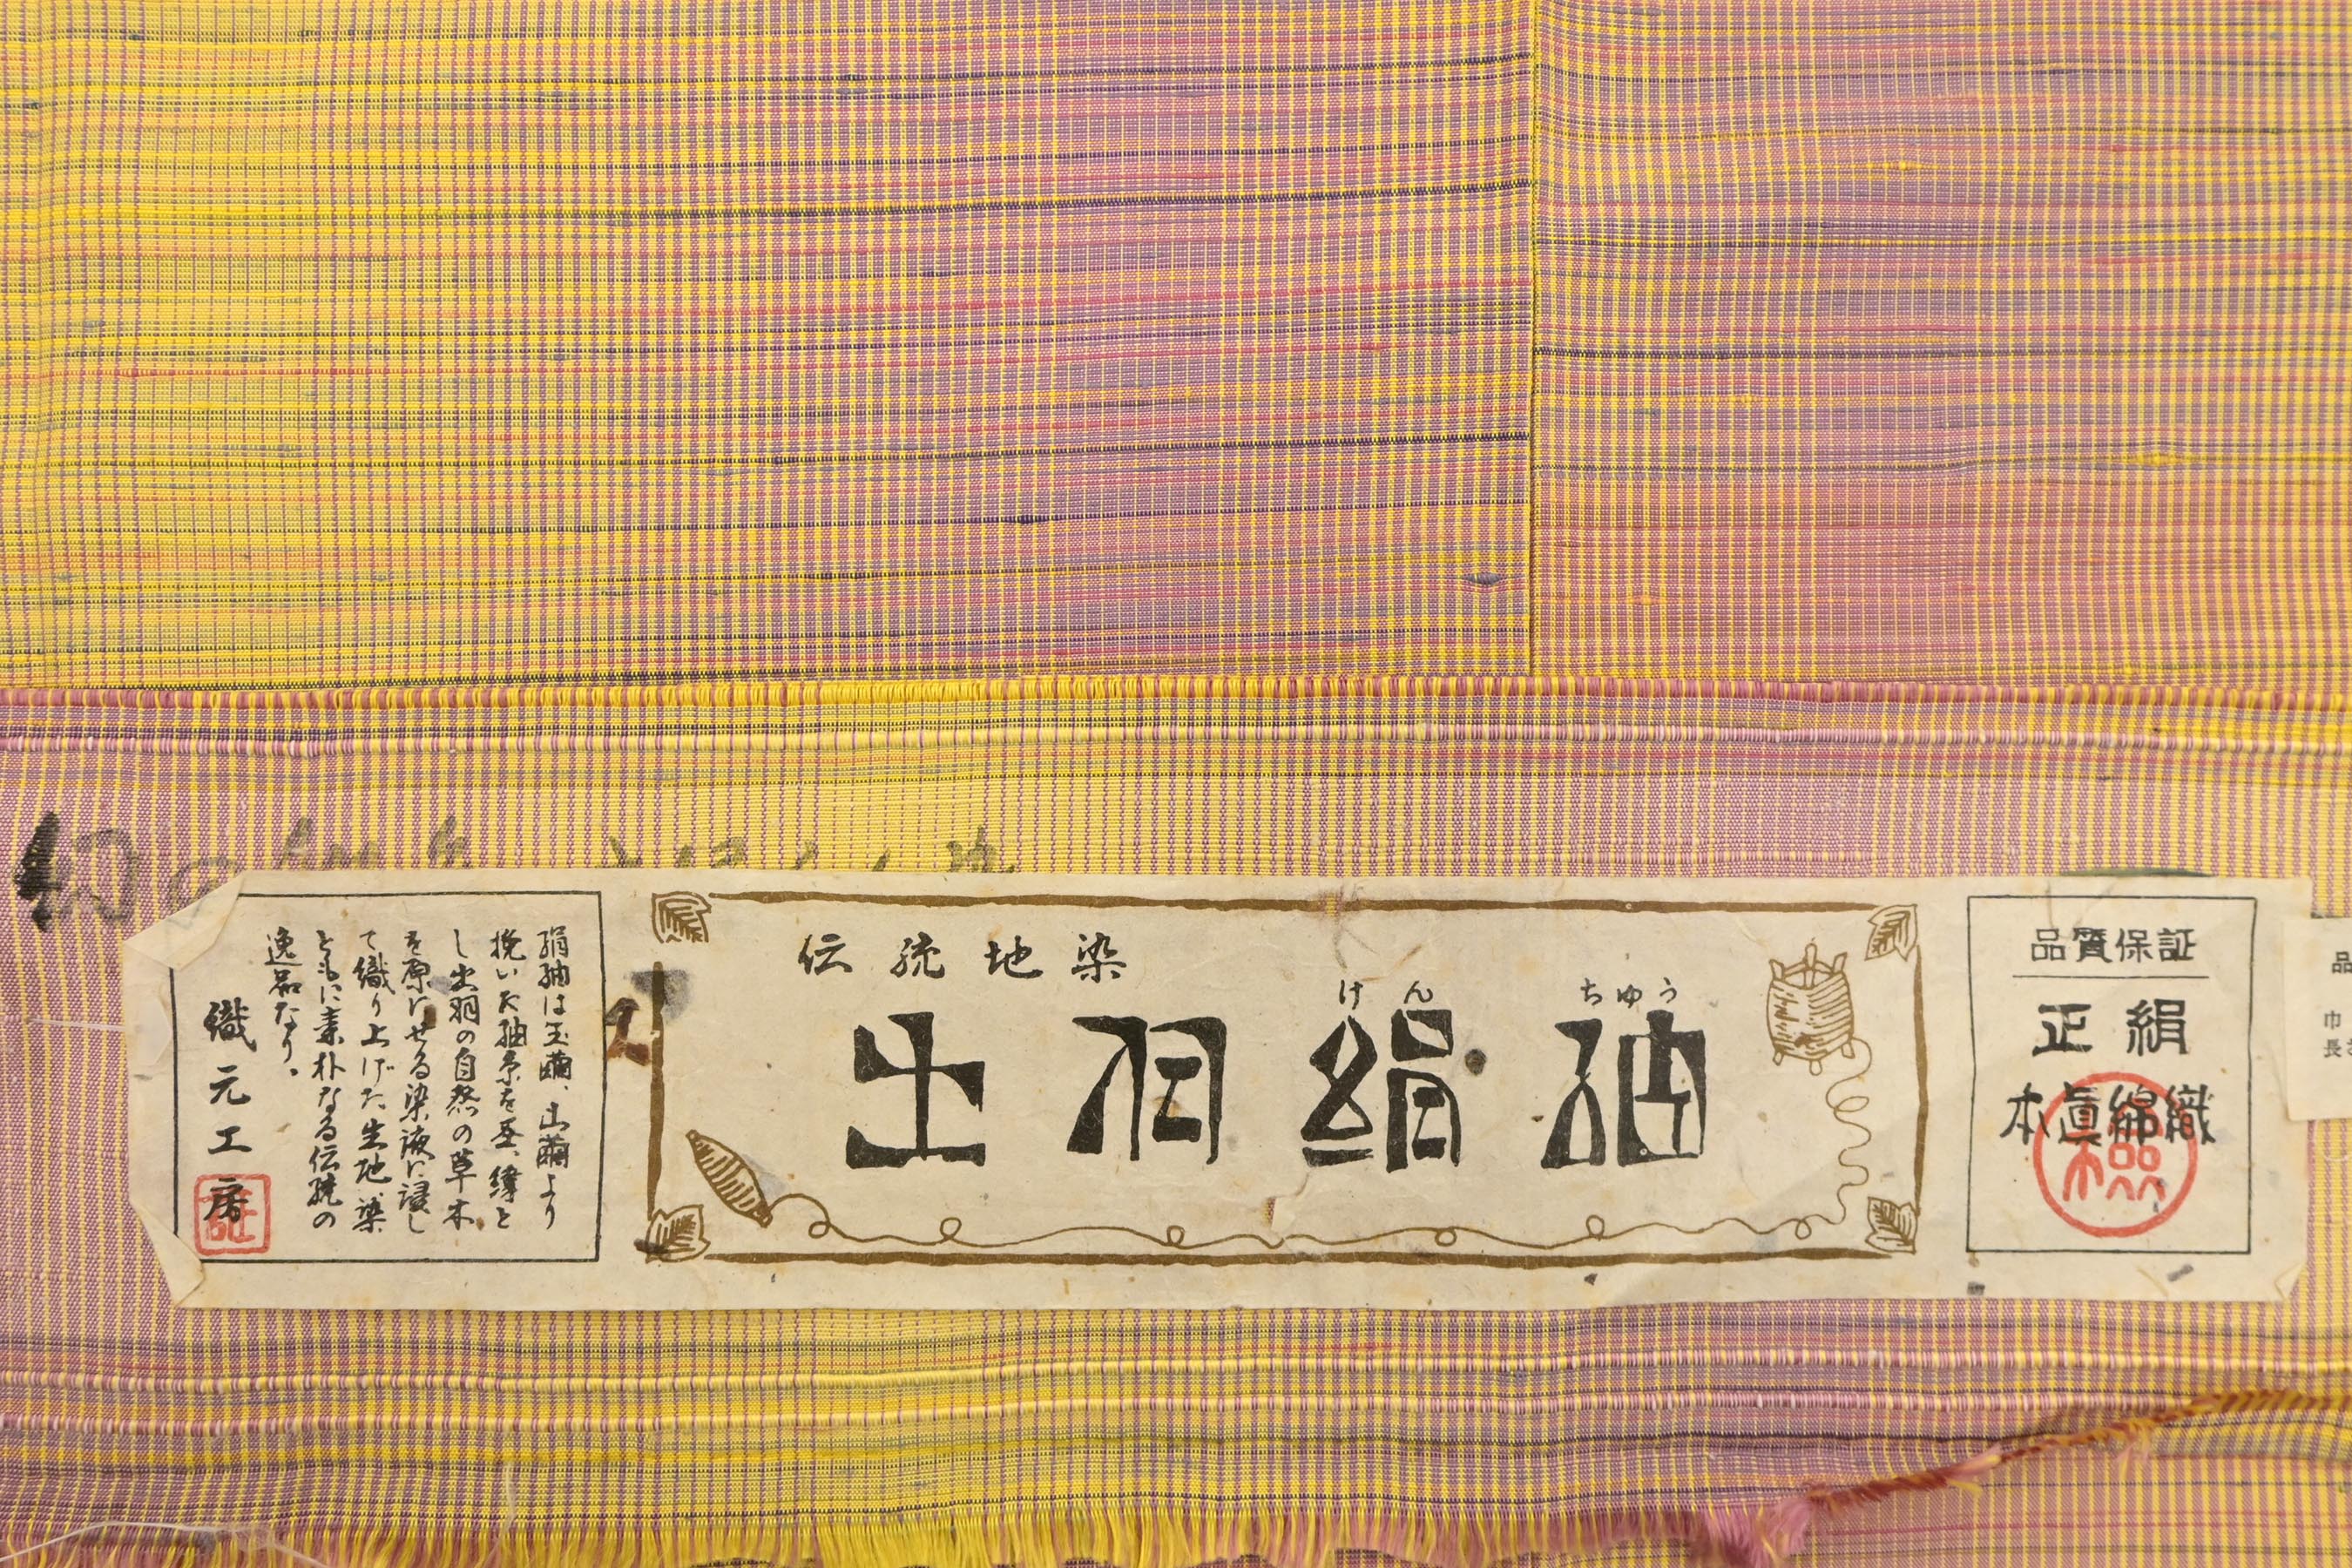 伝統地染
出羽絹紬
けん ちゅう
絹紬は玉繭、山繭より
挽いた紬糸を経、緯と
し出羽の自然の草木
を原にせる染液に浸し
て織り上げた生地染
ともに素朴なる伝統の
逸品なり。
織元工房
証
品質保証
正絹
本眞綿織
品
巾
長さ